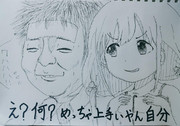 え?何?めっちゃ上手いやん自分